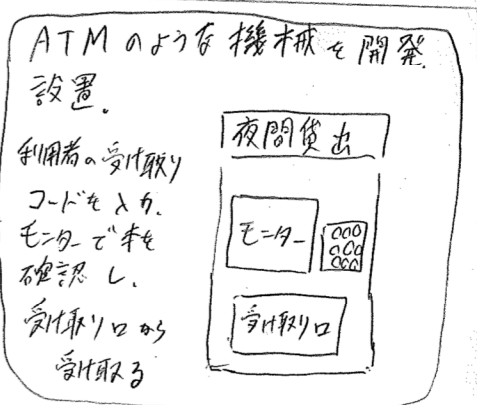 ATMのような機械を開発、
設置。
利用者の受け取り
コードを入力、
モニターで本を
確認し、
受け取り口から
受け取る
夜間貸出
モニター
受け取り口